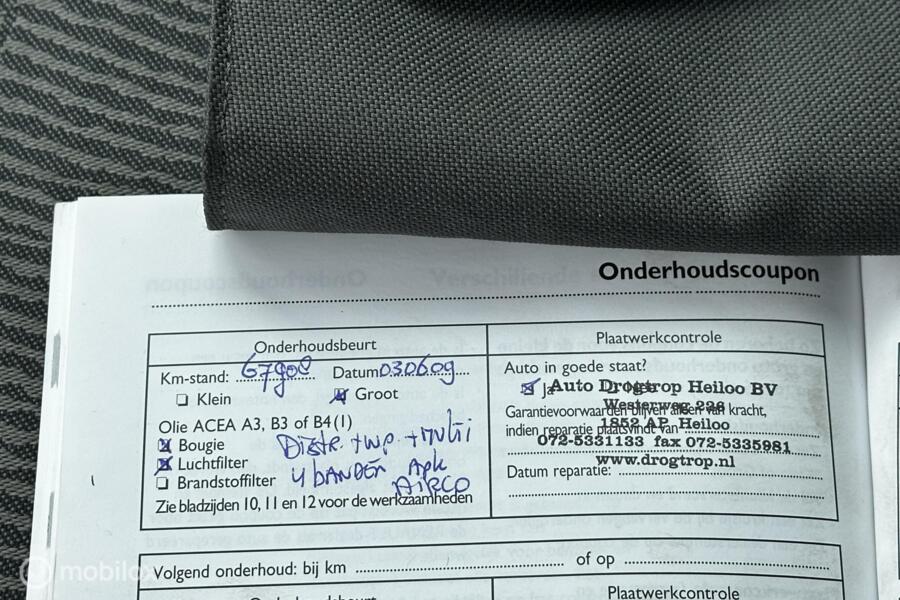 Onderhoudscoupon
Onderhoudsbeurt
Km-stand: 67908 Datum 030609
Klein Groot
Olie ACEA A3, B3 of B4(1)
Bougie Distr. + wp. + multi
Luchtfilter 4 BANDEN Apk
Brandstoffilter AIRCO
Zie bladzijden 10, 11 en 12 voor de werkzaamheden
Plaatwerkcontrole
Auto in goede staat?
Ja Auto Drogtrop Heiloo BV
Westerweg 226
Garantievoorwaarden blijven alleen van kracht,
1852 AP Heiloo
indien reparatie plaatsvindt van
072-5331133 fax 072-5335981
www.drogtrop.nl
Datum reparatie:
Volgend onderhoud: bij km of op
Onderhoudsbeurt Plaatwerkcontrole
mobilox